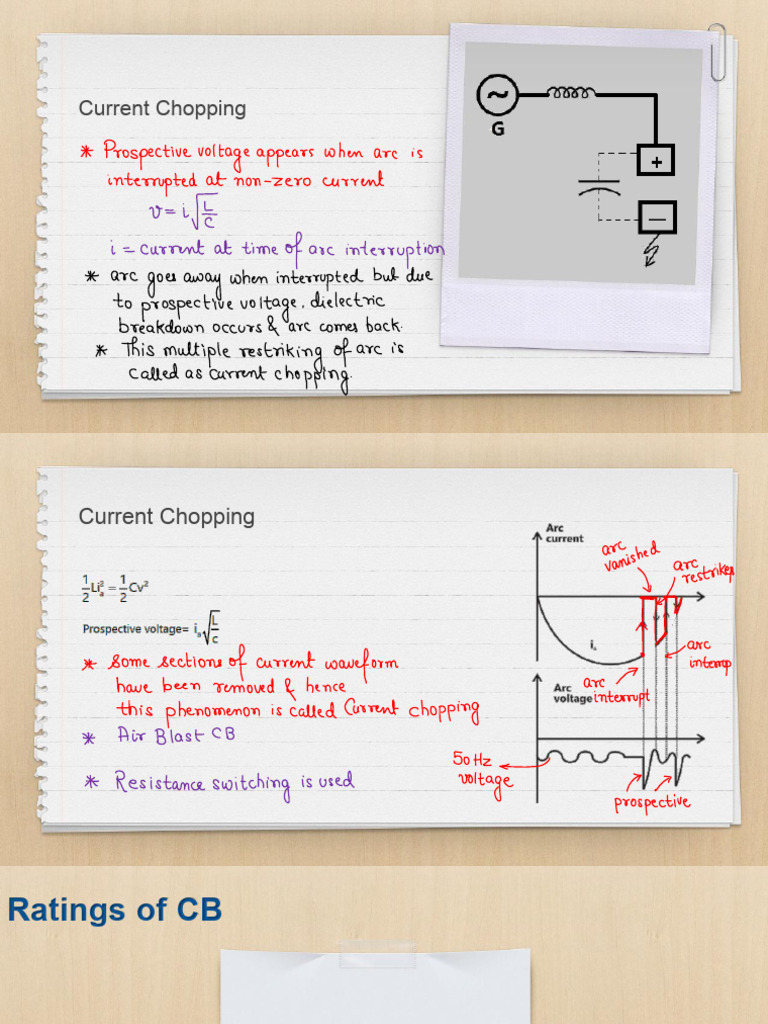 Current Chopping
* Prospective voltage appears when arc is
interrupted at non-zero current
v = i√(L/C)
i = current at time of arc interruption
* arc goes away when interrupted but due
to prospective voltage, dielectric
breakdown occurs & arc comes back.
* This multiple restriking of arc is
called as current chopping.
~
G
+
–
Current Chopping
½Liₐ² = ½Cv²
Prospective voltage= iₐ√(L/c)
* Some sections of current waveform
have been removed & hence
this phenomenon is called Current chopping
* Air Blast CB
* Resistance switching is used
Arc
current
arc
vanished
arc
restrikes
iₐ
arc
interrup
arc
interrupt
Arc
voltage
50Hz
voltage
prospective
Ratings of CB